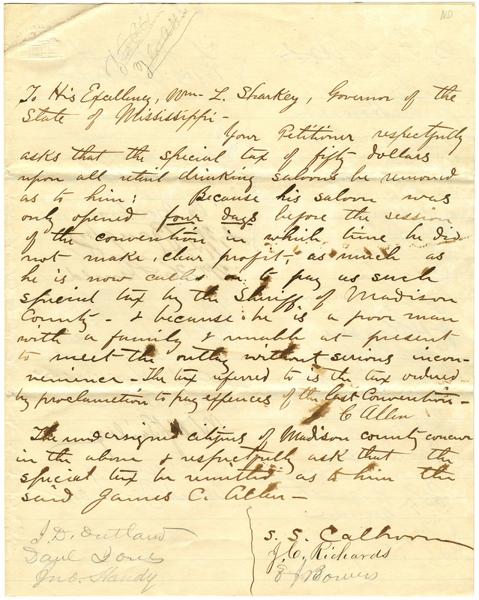 ND
To His Excellency, Wm. L. Sharkey, Governor of the
State of Mississippi -
Your Petitioner respectfully
asks that the special tax of fifty dollars
upon all retail drinking saloons be removed
as to him; Because his saloon was
only opened four days before the session
of the convention in which time he did
not make, clear profit, as much as
he is now called on to pay as such
special tax by the Sheriff of Madison
County - & because he is a poor man
with a family & unable at present
to meet the outlay without serious incon-
venience - The tax referred to is the tax ordered
by proclamation to pay expences of the last Convention -
C Allen
The undersigned citizens of Madison county concur
in the above & respectfully ask that the
special tax be remitted as to him the
said James C. Allen -
J. D. Outlaw
S. S. Calhoon
J. C. Richards
Jno. Handy
E J Bowers